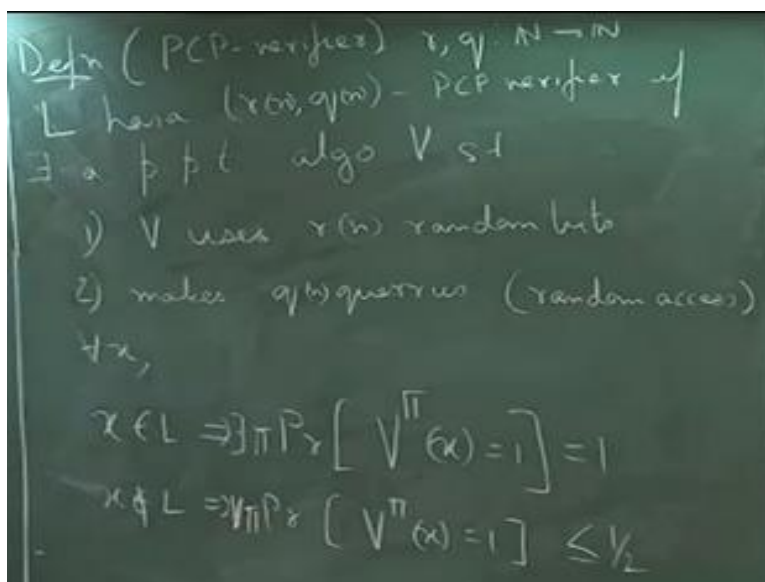 Defn (PCP-verifier) r, q : ℕ → ℕ
L has a (r(n), q(n)) - PCP verifier if
∃ a p p t algo V st
1) V uses r(n) random bits
2) makes q(n) querries (random access)
∀x,
x ∈ L ⇒ ∃π Pr [ V^π (x) = 1 ] = 1
x ∉ L ⇒ ∀π Pr [ V^π (x) = 1 ] ≤ 1/2